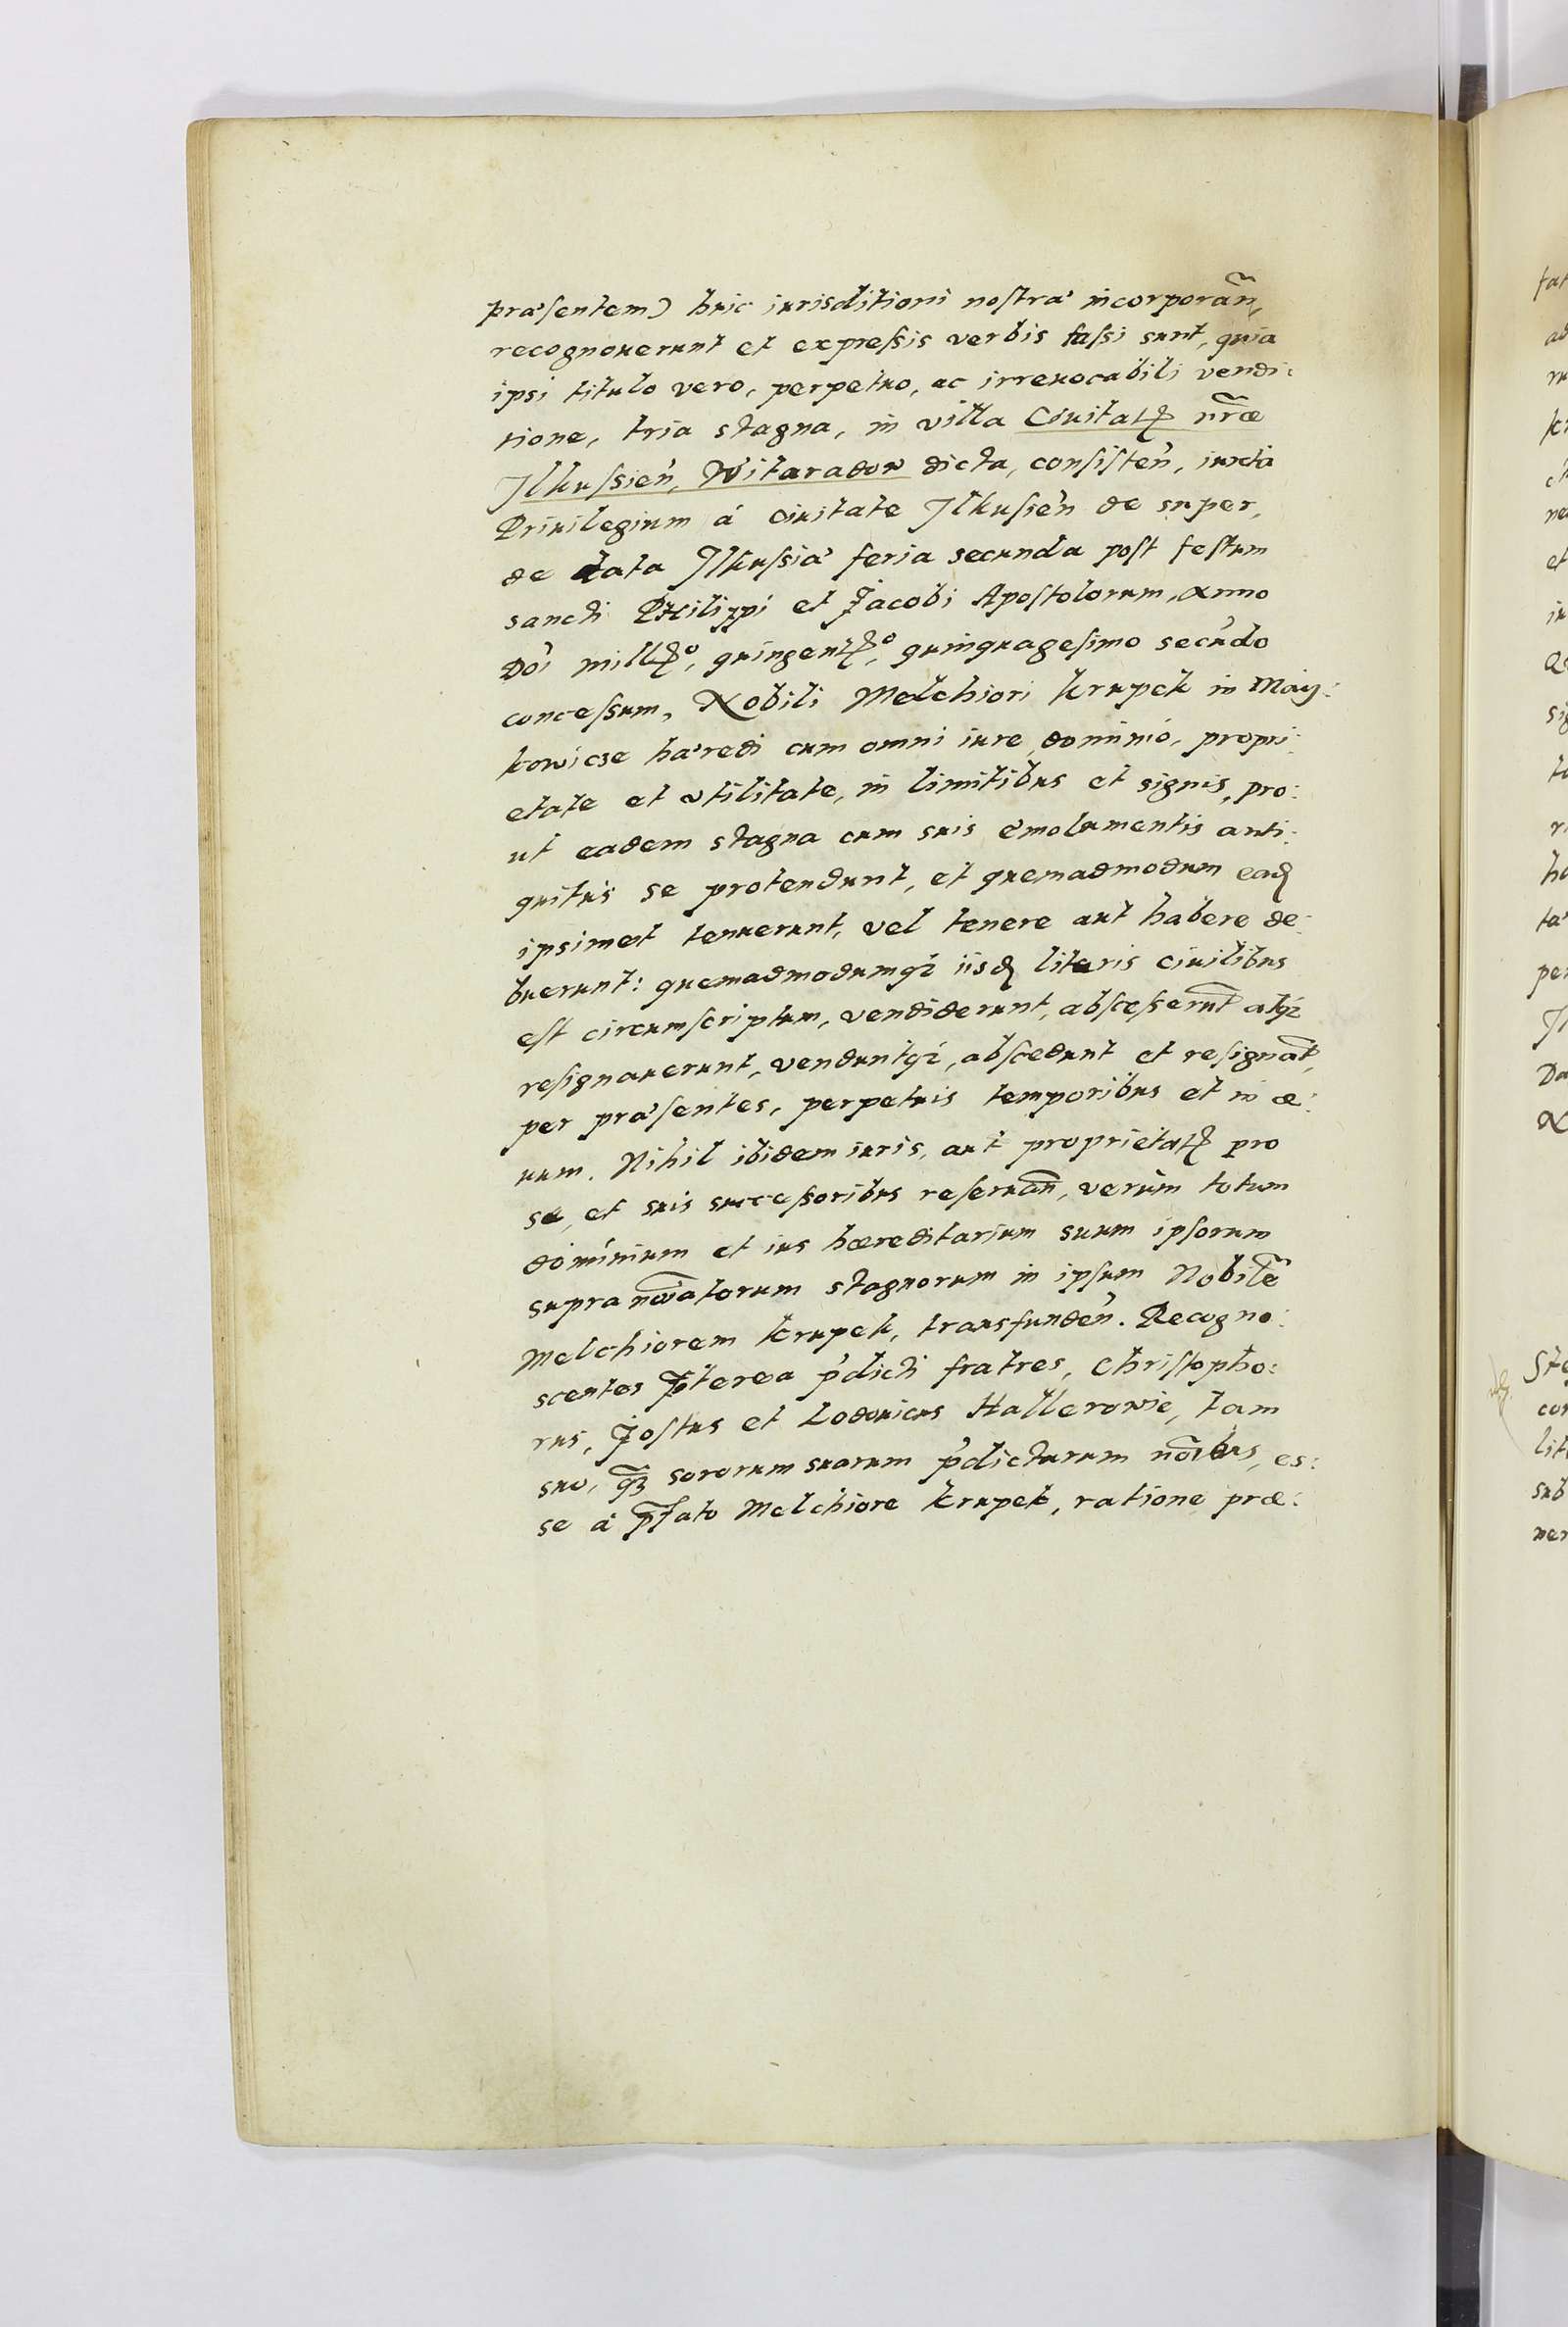 præsentem) huic iurisditioni nostræ incorporañ,
recognouerunt et expreſsis verbis faſsi sunt, quia
ipsi titulo vero, perpetuo, ac irreuocabili vendi:
tione, tria stagna, in villa Ciuitatꝭ nr̃æ
Jlkuſsień, Witaradow dicta, conſiſteń, iuxta
Priuilegium á Ciuitate Jlkuſień de super,
de data Jlkuſsiæ feria secunda poſt feſtum
sancti Philippi et Jacobi Apoſtolorum, Anno
Dói millꝭº, quingentꝭº, quinquageſimo secúdo
conceſsum, Nobili Melchiori Krupek in May:
kowicze hæredi cum omni iure, dominió, propri:
etate et vtilitate, in limitibus et signis, pro:
ut eadem stagna cum suis emolumentis anti:
quitus se protendunt, et quemadmodum eaꝺ
ipsimet tenuerunt, vel tenere aut habere de:
buerunt: quemadmodumqꝫ iisꝺ literis ciuilibus
eſt circumſcriptum, vendiderunt, abſceſserunt atqꝫ
reſignauerunt, venduntqꝫ, abſcedunt et reſignãt,
per præſentes, perpetuis temporibus et in æ:
uum. Nihil ibidem iuris, aut proprietatꝭ pro
se, et suis succeſsoribus reſeruañ, verùm totum
dominium et ius hæreditarium suum ipſorum
supranoĩatorum stagnorum in ipſum Nobilẽ
Melchiorem Krupek, transfundeń. Recogno:
scentes p̃terea p̓dicti fratres, Chriſtopho:
rus, Joſtus et Lodouicus Hallerowie, tam
suo, q̃ꝫ sororum suarum p̓dictarum nõibus, es:
se á p̃fato Melchiore Krupek, ratione præ: